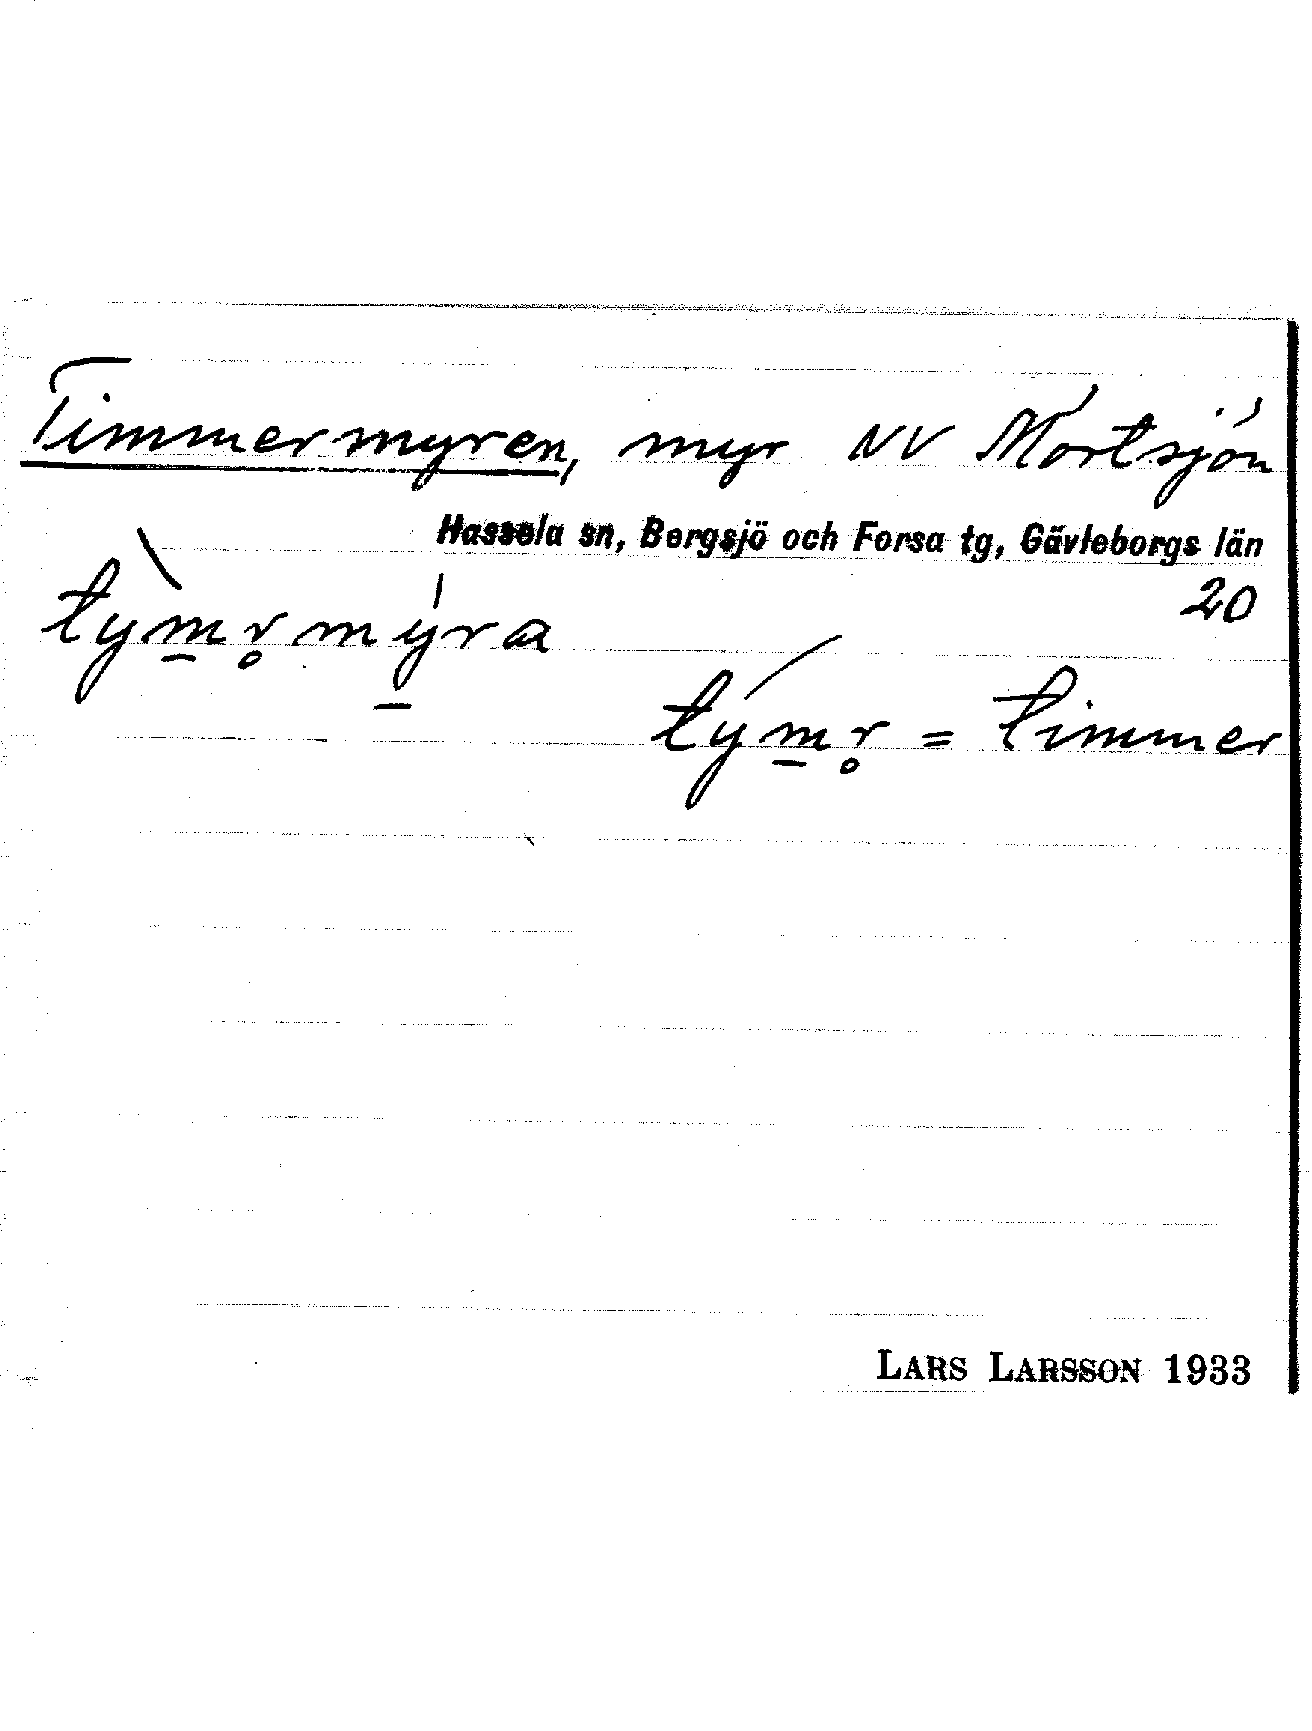 Timmermyren, myr NV Mortsjön
Hassela sn, Bergsjö och Forsa tg, Gävleborgs län
20
tỳm̲r̥mý̲ra
tým̲r̥ = timmer
LARS LARSSON 1933